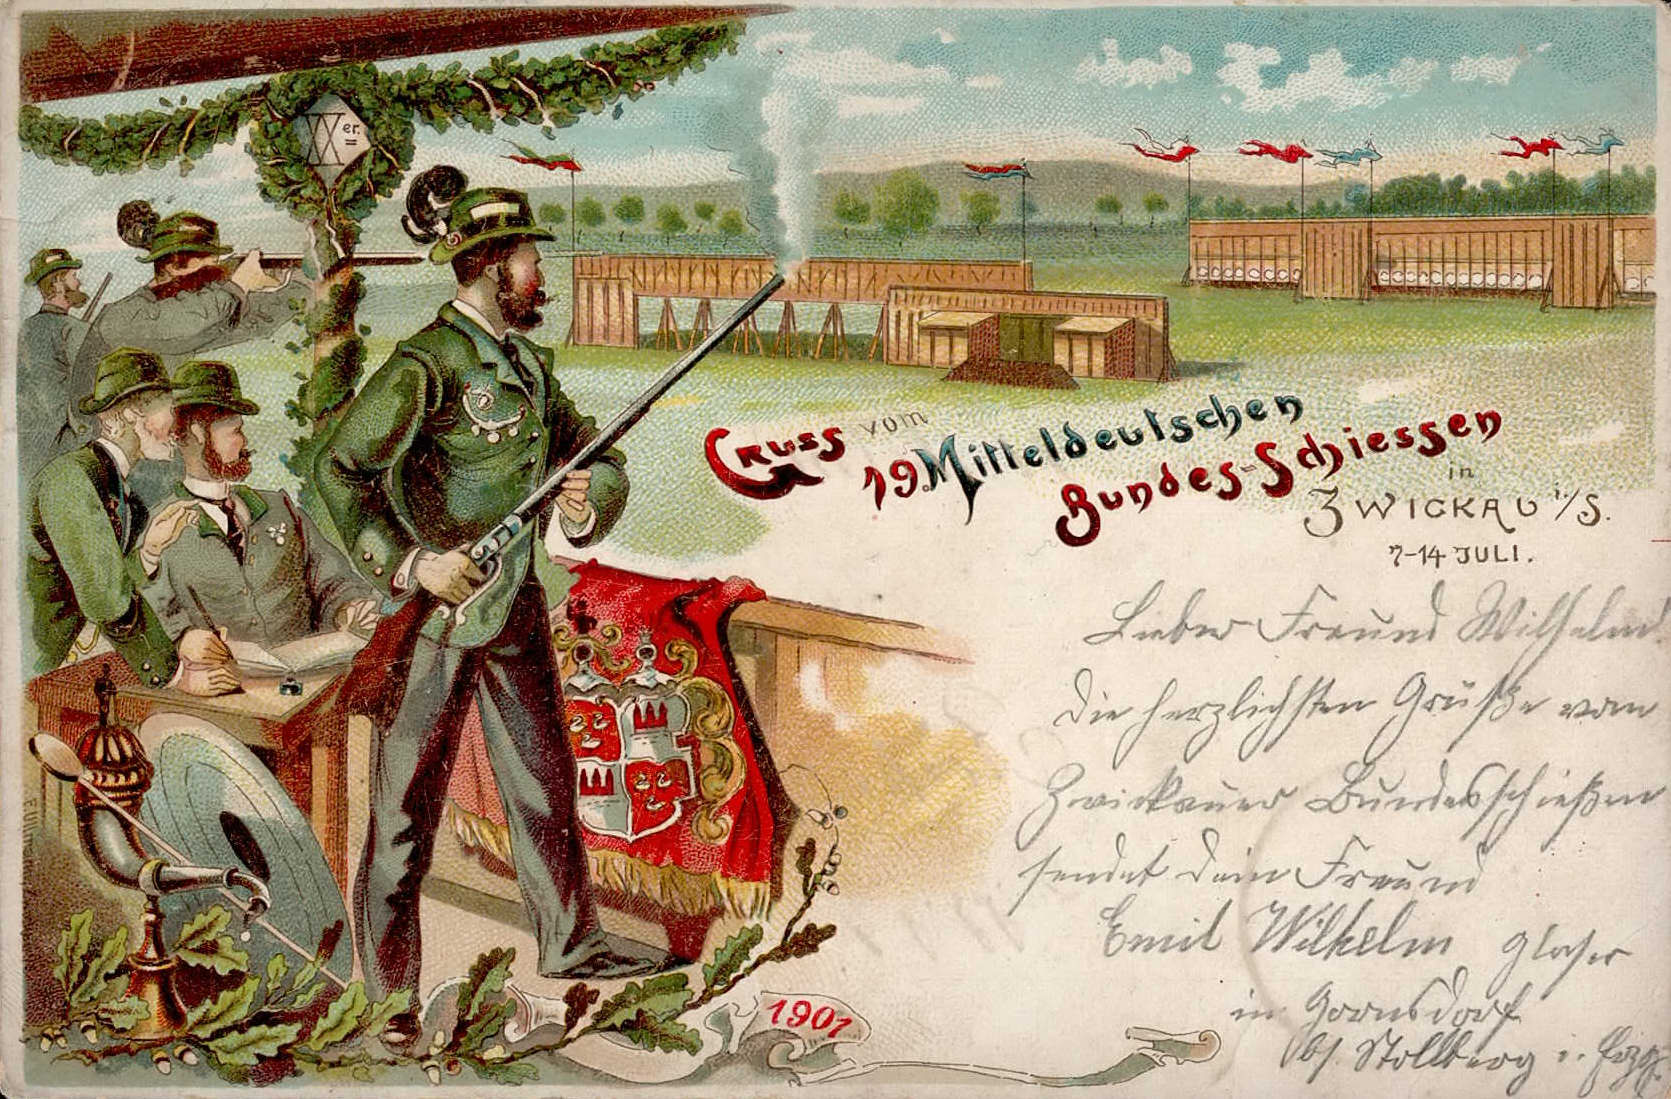 IXer.
Gruss vom
19. Mitteldeutschen
Bundes-Schiessen
in
Zwickau i/S.
7-14 Juli.
Lieber Freund Wilhelm.
Die herzlichsten Grüße vom
Zwickauer Bundesschießen
sendet dein Freund
Emil Wilhelm Glaser
in Gornsdorf
b/. Stollberg i. Erzg.
1901